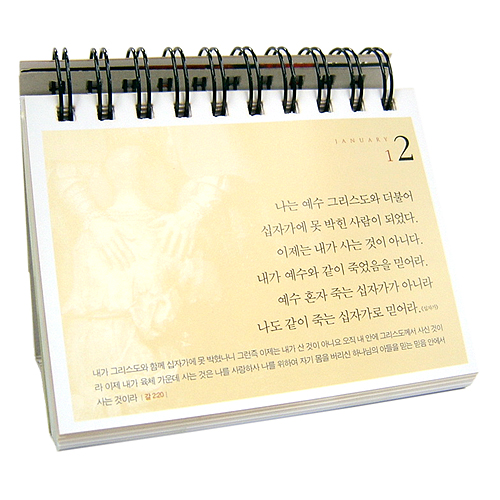 JANUARY
1 2
나는 예수 그리스도와 더불어
십자가에 못 박힌 사람이 되었다.
이제는 내가 사는 것이 아니다.
내가 예수와 같이 죽었음을 믿어라.
예수 혼자 죽는 십자가가 아니라
나도 같이 죽는 십자가로 믿어라.
내가 그리스도와 함께 십자가에 못 박혔나니 그런즉 이제는 내가 산 것이 아니요 오직 내 안에 그리스도께서 사신 것이
라 이제 내가 육체 가운데 사는 것은 나를 사랑하사 나를 위하여 자기 몸을 버리신 하나님의 아들을 믿는 믿음 안에서
사는 것이라 | 갈 2:20 |